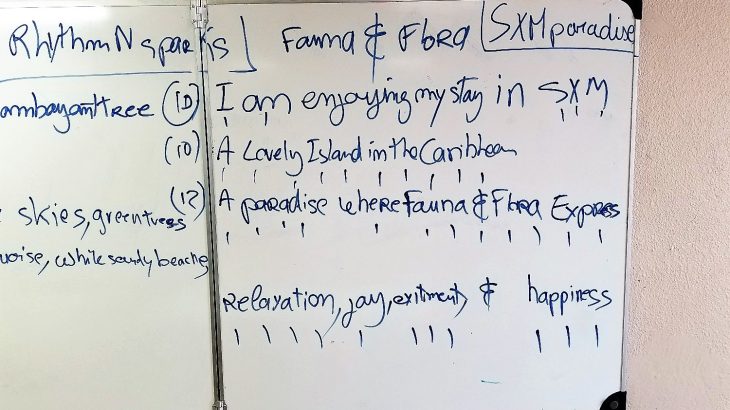 RhythmNsparks
ambayamtree (10)
(10)
(12)
skies, greentrees
uoise, while sandy beaches
Fauna & Flora SXMparadise
I am enjoying my stay in SXM
A Lovely Island in the Caribbean
A paradise where Fauna & Flora Express
Relaxation, joy, exitment, & happiness